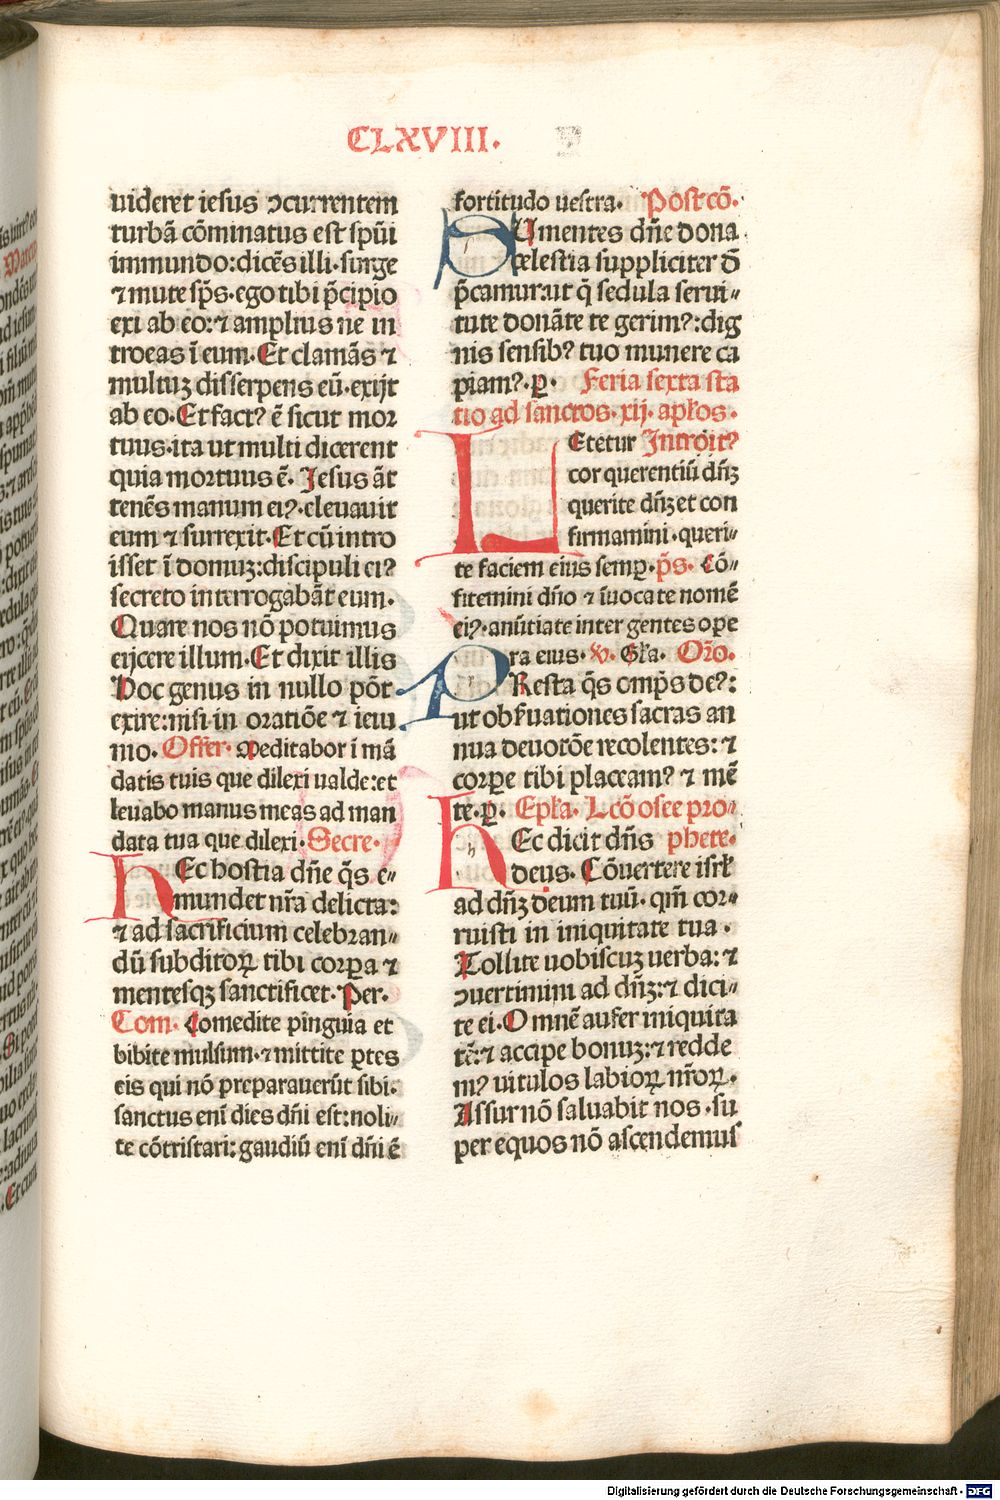 CLXVIII.
uideret iesus ↄcurrentem
turbā cōminatus est spūi
immundo: dicēs illi. surge
⁊ mute sp̄s. ego tibi p̄cipio
exi ab eo: ⁊ amplius ne in
troeas ī eum. Et clamās ⁊
multuꝫ disserpens eū. exijt
ab eo. Et factꝰ ē sicut mor
tuus. ita ut multi dicerent
quia mortuus ē. Jesus āt
tenēs manum eiꝰ. eleuauit
eum ⁊ surrexit. Et cū intro
isset ī domuꝫ: discipuli eiꝰ
secreto interrogabāt eum.
Quare nos nō potuimus
eijcere illum. Et dixit illis
Hoc genus in nullo pōt
exire: nisi in oratiōe ⁊ ieiu
nio. Offer. Meditabor ī mā
datis tuis que dilexi ualde: et
leuabo manus meas ad man
data tua que dilexi. Secre.
HEc hostia dn̄e q̄s e〃
mundet nr̄a delicta:
⁊ ad sacrificium celebran〃
dū subditoꝝ tibi corꝑa ⁊
mentesqꝫ sanctificet. Per.
Com. Comedite pinguia et
bibite mulsum. ⁊ mittite ꝑtes
eis qui nō preparauerūt sibi.
sanctus enī dies dn̄i est: noli〃
te cōtristari: gaudiū enī dn̄i ē
fortitudo uestra. Post cō.
SUmentes dn̄e dona
celestia suppliciter d̄
p̄camur: ut q̄ sedula serui〃
tute donāte te gerimꝰ: dig
nis sensibꝰ tuo munere ca
piamꝰ. ꝑ. Feria sexta sta
tio ad sanctos. xij. aptos.
LEtetur Introitꝰ
cor querentiū dn̄ꝫ
querite dn̄ꝫ et con
firmamini. queri〃
te faciem eius semꝑ. p̄s. Cō〃
fitemini dn̄o ⁊ īuocate nomē
eiꝰ. anūtiate inter gentes ope
ra eius. v. Gl'a. Or̄o.
PResta q̄s omp̄s deꝰ:
ut obẜuationes sacras an
nua deuotōe recolentes: ⁊
corꝑe tibi placeamꝰ ⁊ mē
te. ꝑ. Ep'la. Lcō osee pro〃
HEc dicit dn̄s phete.
deus. Cōuertere isrl'
ad dn̄ꝫ deum tuū. qm̄ cor〃
ruisti in iniquitate tua.
Tollite uobiscuꝫ uerba: ⁊
ↄuertimini ad dn̄ꝫ: ⁊ dici〃
te ei. Omnē aufer iniquita
tē: ⁊ accipe bonuꝫ: ⁊ redde
mꝰ uitulos labioꝝ nr̄oꝝ.
Assur nō saluabit nos. su
per equos nō ascendemus
Digitalisierung gefördert durch die Deutsche Forschungsgemeinschaft - DFG